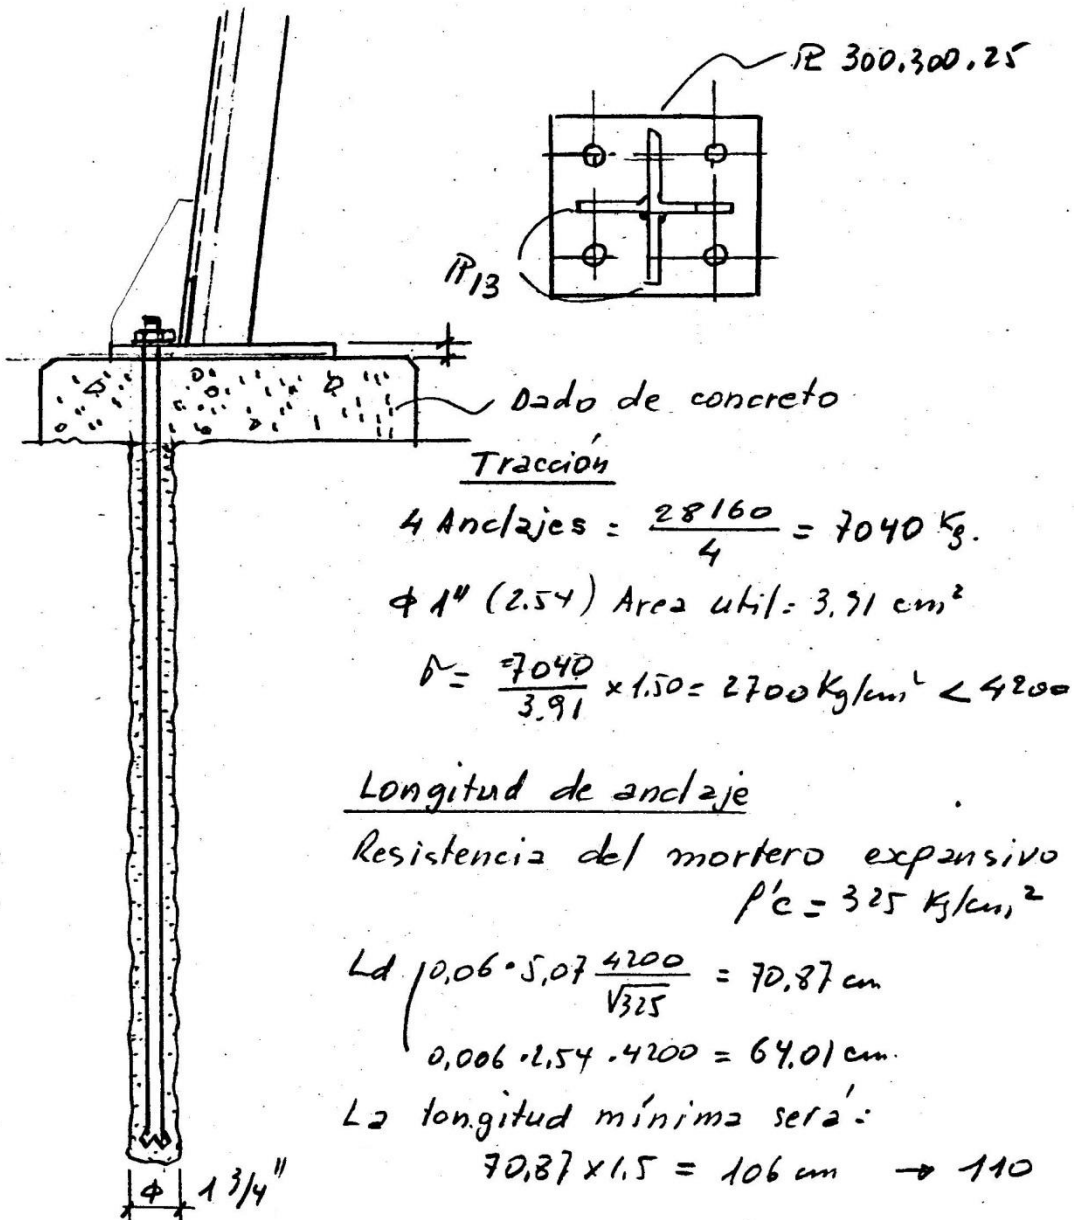 PL 300.300.25
PL 13
Dado de concreto
Tracción
4 Anclajes = 28160/4 = 7040 Kg.
ϕ 1" (2.54) Area util: 3,91 cm²
σ = 7040/3.91 × 1.50 = 2700 Kg/cm² < 4200
Longitud de anclaje
Resistencia del mortero expansivo
f'c = 325 Kg/cm²
Ld 0,06 · 5,07 4200/√325 = 70,87 cm
0,006 · 2,54 · 4200 = 64,01 cm.
La longitud mínima será:
70,87 × 1.5 = 106 cm → 110
ϕ 1 3/4"